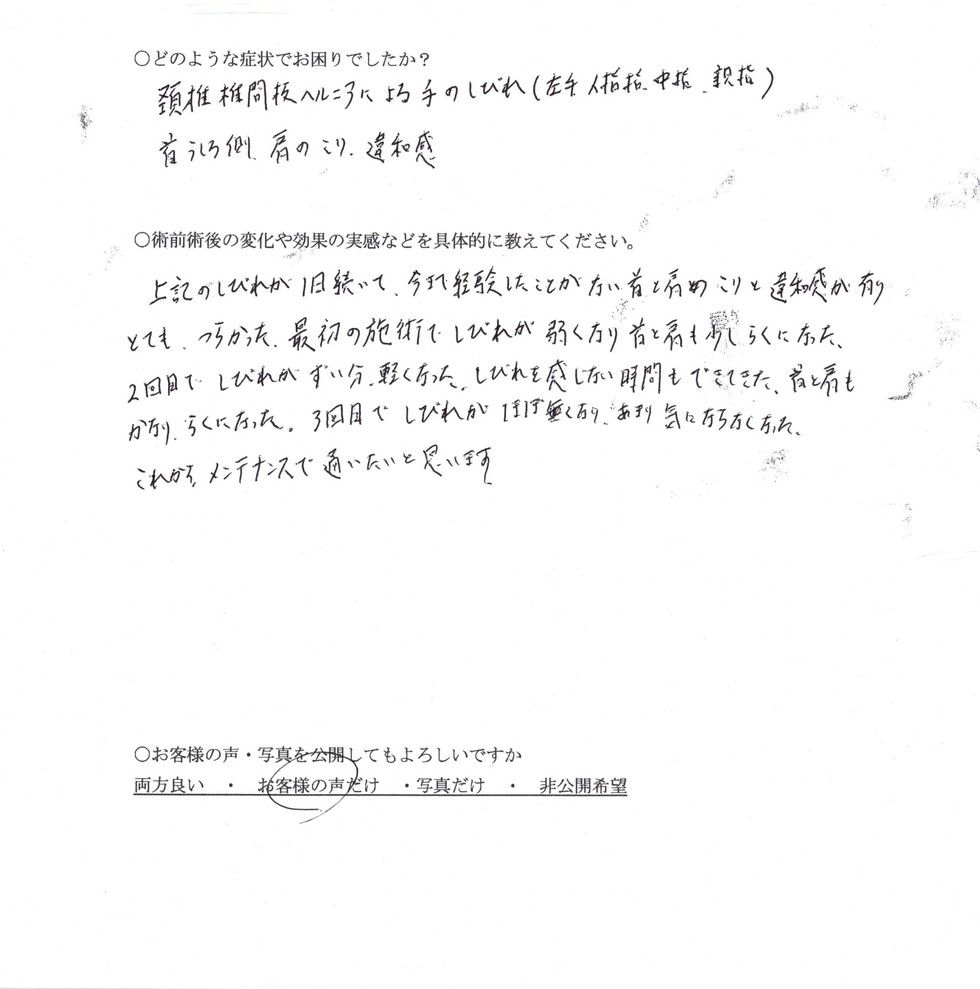 ○どのような症状でお困りでしたか？
頚椎椎間板ヘルニアによる手のしびれ(左手 人指指、中指、親指)
首うしろ側、肩のこり、違和感
○術前術後の変化や効果の実感などを具体的に教えてください。
上記のしびれが1日続いて、今まで経験したことがない首と肩のこりと違和感が有り
とても、つらかった、最初の施術でしびれが弱くなり首と肩も少しらくになった、
2回目でしびれがずい分、軽くなった、しびれを感じない時間もできてきた、首と肩も
かなり、らくになった。3回目でしびれがほぼ無くなり、あまり気にならなくなった、
これから、メンテナンスで通いたいと思います
○お客様の声・写真を公開してもよろしいですか
両方良い ・ お客様の声だけ ・写真だけ ・ 非公開希望